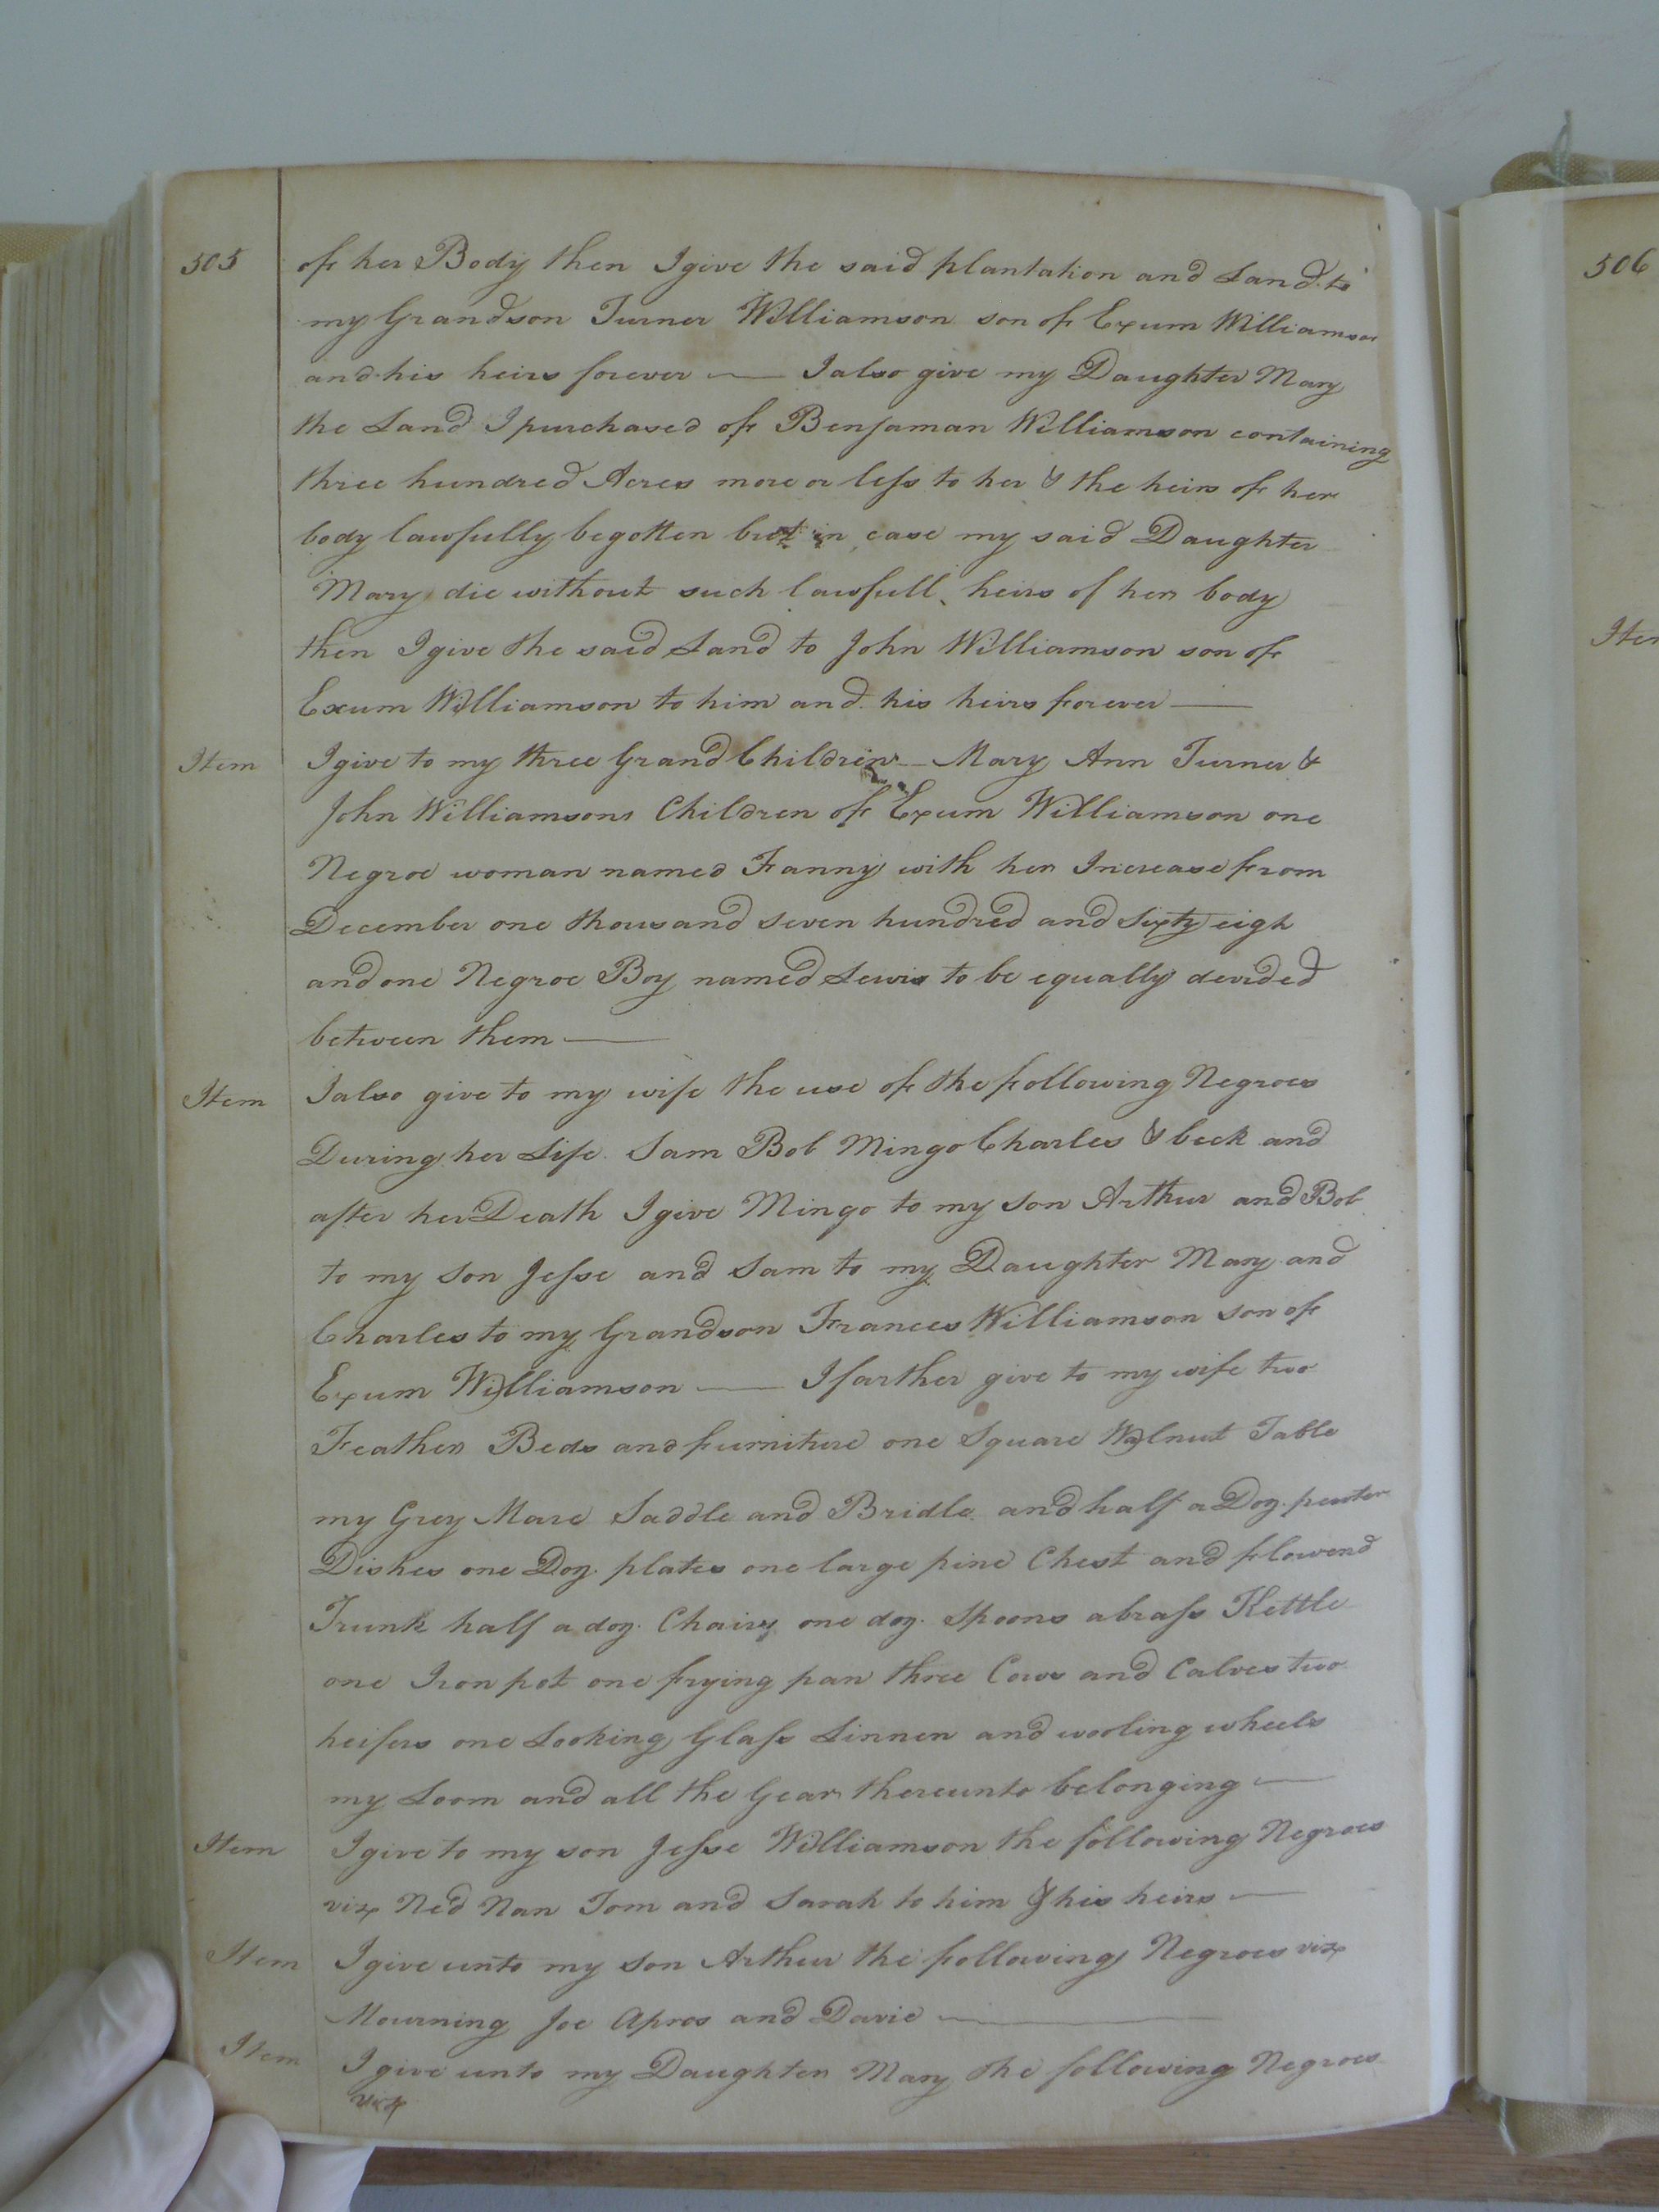 505
of her Body then I give the said plantation and Land to
my Grandson Turner Williamson son of Exum Williamson
and his heirs forever — I also give my Daughter Mary
the Land I purchased of Benjaman Williamson containing
three hundred Acres more or less to her & the heirs of her
body lawfully begotten but in case my said Daughter
Mary die without such lawfull heirs of her body
then I give the said Land to John Williamson son of
Exum Williamson to him and his heirs forever —
Item I give to my three Grand Children Mary Ann Turner &
John Williamsons Children of Exum Williamson one
Negroe woman named Fanny with her Increase from
December one thousand seven hundred and Sixty eigh
and one Negroe Boy named Lewis to be equally devided
between them —
Item I also give to my wife the use of the following Negroes
During her Life. Sam Bob Mingo Charles & beck and
after her Death I give Mingo to my son Arthur and Bob
to my son Jesse and Sam to my Daughter Mary and
Charles to my Grandson Frances Williamson son of
Exum Williamson — I farther give to my wife two
Feather Beds and furniture one Square Walnut Table
my Grey Mare Saddle and Bridle and half a Doz. pewter
Dishes one Doz. plates one large pine Chest and flowend
Trunk half a doz. Chairs one doz. Spoons a brass Kettle
one Iron pot one frying pan three Cows and Calves two
heifers one Looking Glass Linnen and wooling wheels
my Loom and all the Gear thereunto belonging —
Item I give to my son Jesse Williamson the following Negroes
viz Ned Nan Tom and Sarah to him & his heirs —
Item I give unto my son Arthur the following Negroes viz
Mourning Joe Apros and Davie —
Item I give unto my Daughter Mary the following Negroes
viz
506
Iter